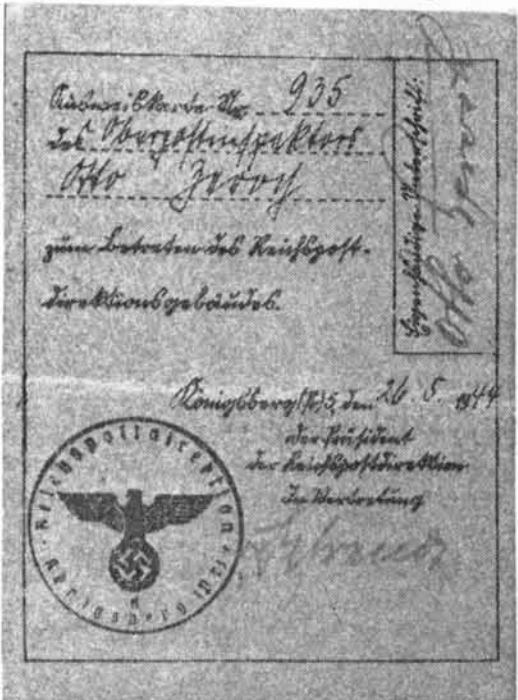 Ausweiskarte Nr. 935
des Oberpostinspektors
Otto Zeroch
zum Betreten des Reichspost-
direktionsgebäudes.
Eigenhändige Unterschrift:
Otto
Königsberg (Pr) 5, den 26 5. 1944
Der Präsident
der Reichspostdirektion
In Vertretung
Reichspostdirektion
Königsberg (Pr)